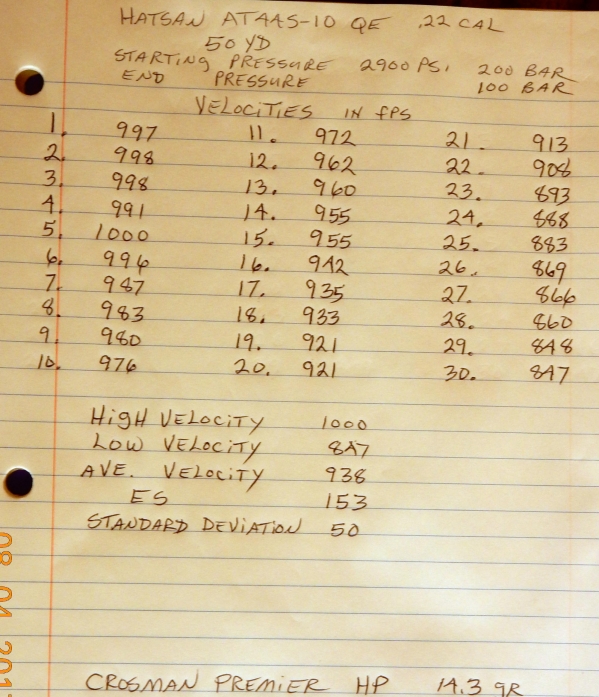 HATSAN AT44S-10 QE .22 CAL
50 YD
STARTING PRESSURE 2900 PSI 200 BAR
END PRESSURE 100 BAR
VELOCITIES IN fPS
1. 997 11. 972 21. 913
2. 998 12. 962 22. 908
3. 998 13. 960 23. 893
4. 991 14. 955 24. 888
5. 1000 15. 955 25. 883
6. 996 16. 942 26. 869
7. 987 17. 935 27. 866
8. 983 18. 933 28. 860
9. 980 19. 921 29. 848
10. 976 20. 921 30. 847
HIGH VELOCITY 1000
LOW VELOCITY 847
AVE. VELOCITY 938
ES 153
STANDARD DEVIATION 50
CROSMAN PREMIER HP 14.3 gR
08 04 201